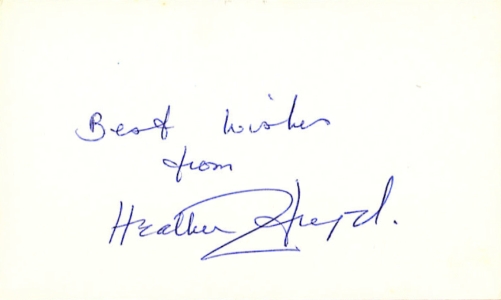 Best wishes
from
Heather